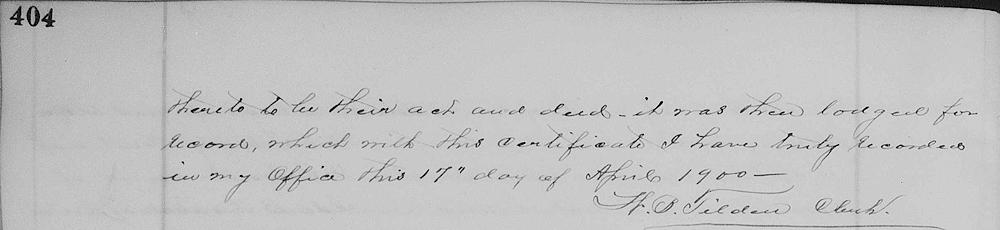 404
thereto to be their act and deed - it was then lodged for
record, which with this certificate I have truly recorded
in my Office this 17" day of April 1900 —
H. B. Tilden Clerk.